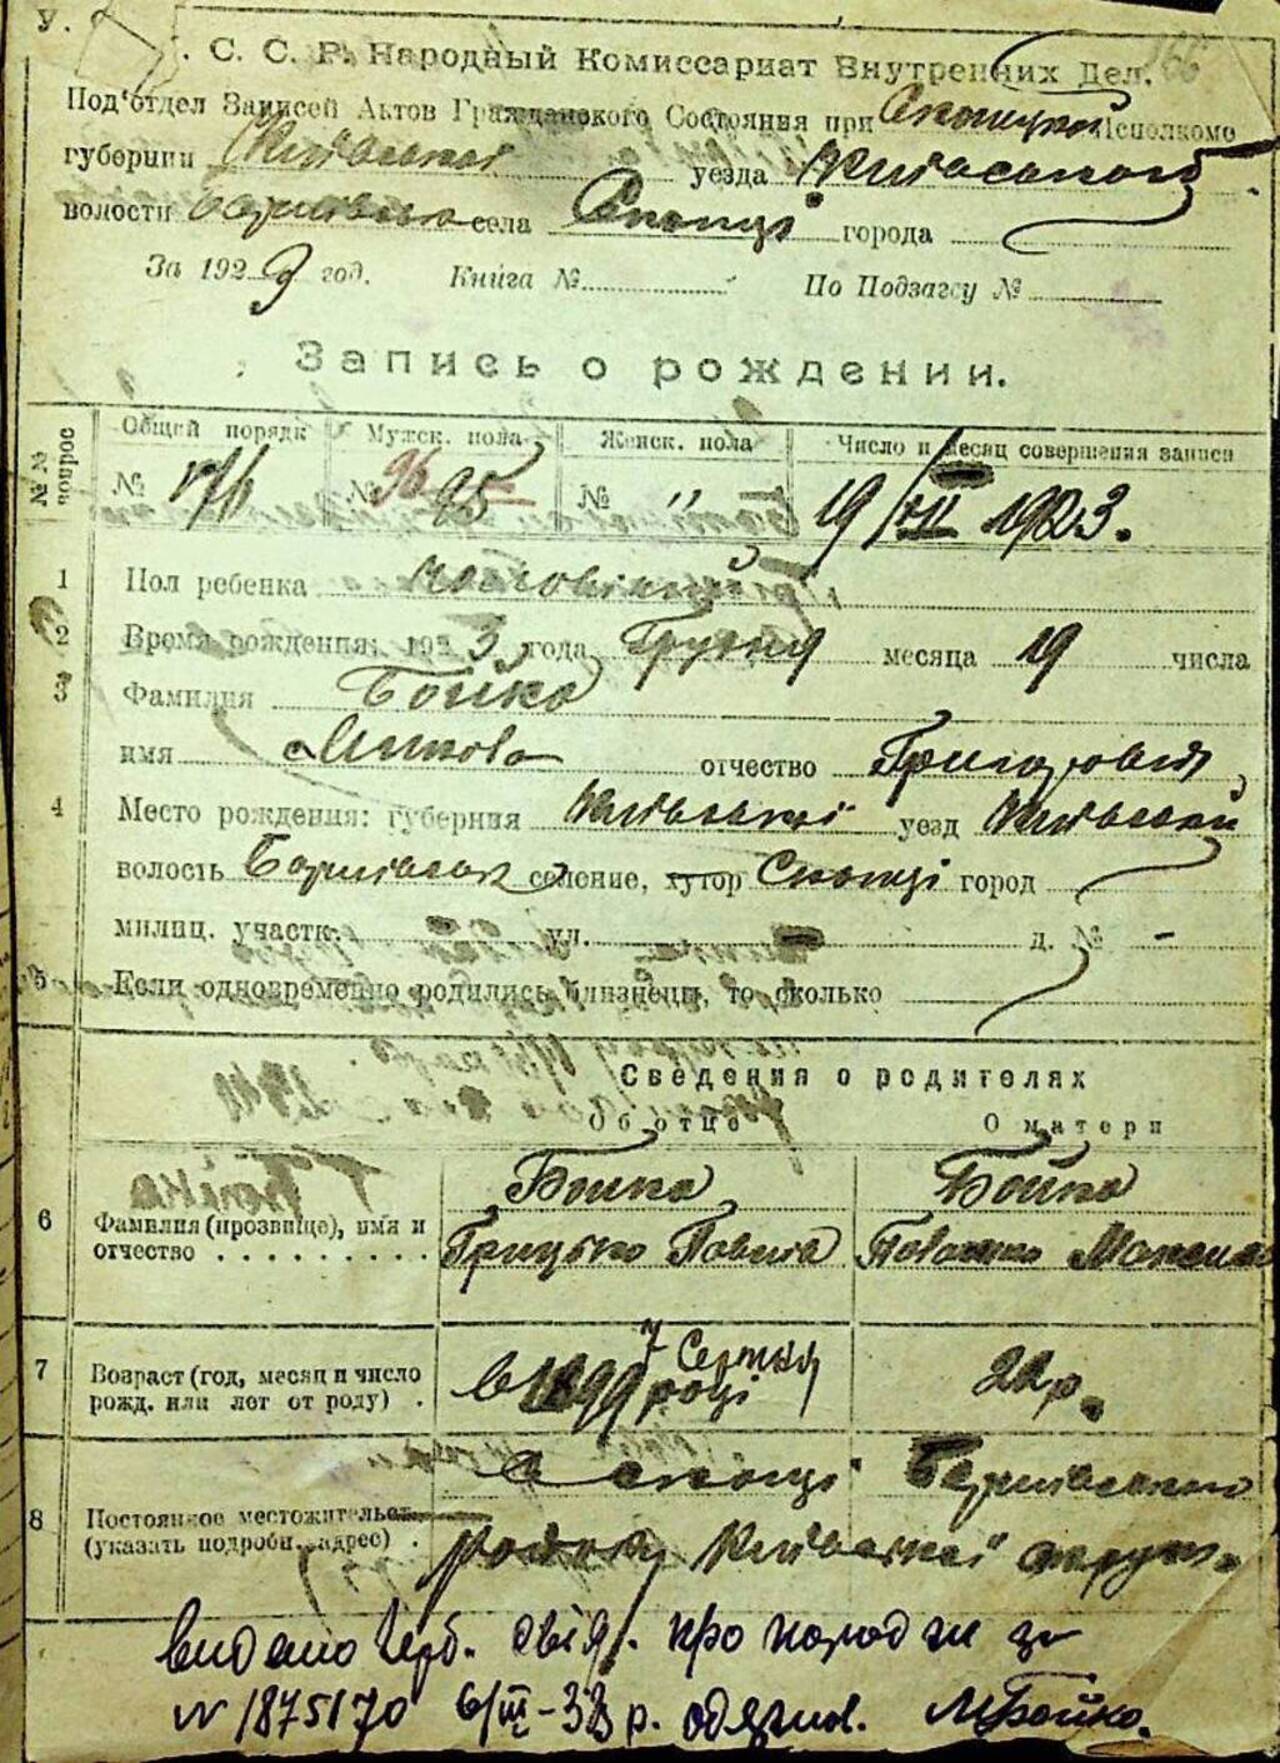 У. . С. С. Р. Народный Комиссариат Внутренних Дел.
Под'отдел Записей Актов Гражданского Состояния при Исполкоме
губернии Київської уезда Київського
волости села города
За 1923 год. Книга № По Подзагсу №
Запись о рождении.
№№ вопрос Общий порядк Мужск. пола Женск. пола Число и месяц совершения записи
№ 176 № 96 95 № " 19/XII 1923.
1 Пол ребенка чоловічий
2 Время рождения: 1923 года Грудня месяца 19 числа
3 Фамилия Бойко
имя Микола отчество Григорович
4 Место рождения: губерния Київської уезд Київський
волость селение, хутор город
милиц. участк. ул. д. № -
5 Если одновременно родились близнецы, то сколько
Сведения о родителях
Об отце О матери
6 Фамилия (прозвище), имя и отчество
Бойко Бойко
Грицько Павлів
7 Возраст (год, месяц и число рожд. или лет от роду)
в 1899 році 7 Серпня 22 р.
8 Постоянное местожительст. (указать подробн. адрес)
району Київської округи
видано герб. свід. про народжен за
№ 1875170 6/III-38 р. М Бойко.